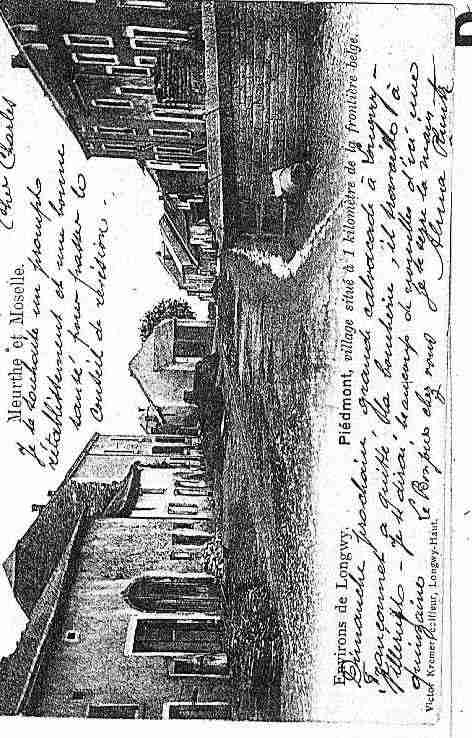 Meurthe et Moselle.
Cher Charles
Je te souhaite un prompte
rétablissement et une bonne
santé pour passer le
conseil de révision.
Environs de Longwy. Piédmont, village situé à 1 kilomètre de la frontière belge.
Dimanche prochain grande calvacade à Longwy –
a quitté la boucherie, il travaille à
Villerupt – Je te dirai beaucoup de nouvelles d'ici une
quinzaine. Le Bonjour chez vous Je te serre la main
Victor Kremer, Longwy-Haut.